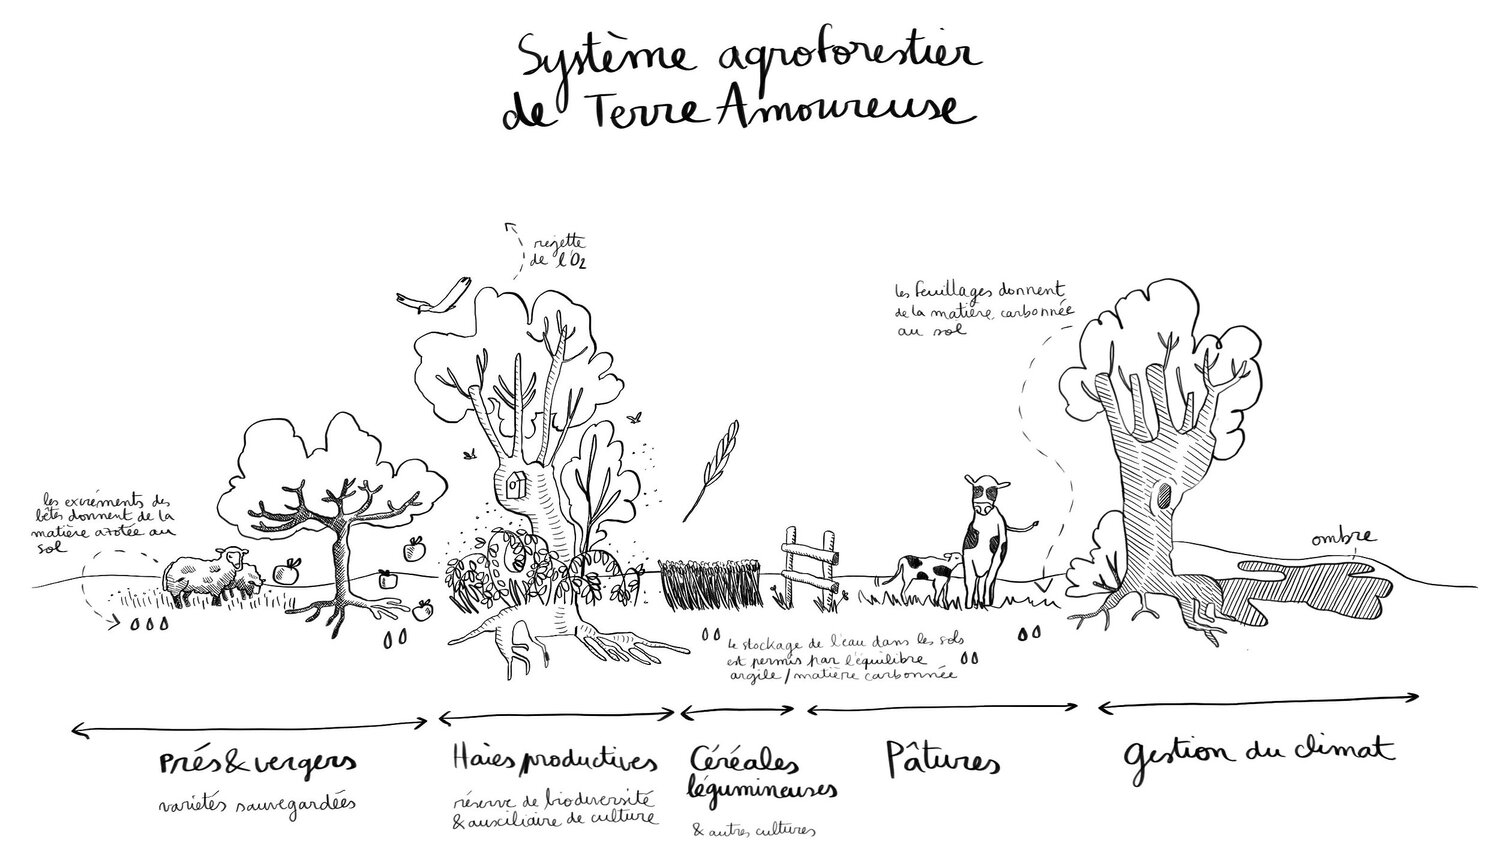 Système agroforestier
de Terre Amoureuse
rejette
de l'O2
les feuillages donnent
de la matière carbonnée
au sol
les excréments des
bêtes donnent de la
matière azotée au
sol
ombre
le stockage de l'eau dans les sols
est permis par l'équilibre
argile / matière carbonnée
Prés & vergers
variétés sauvegardées
Haies productives
réserve de biodiversité
& auxiliaire de culture
Céréales
légumineuses
& autres cultures
Pâtures
gestion du climat